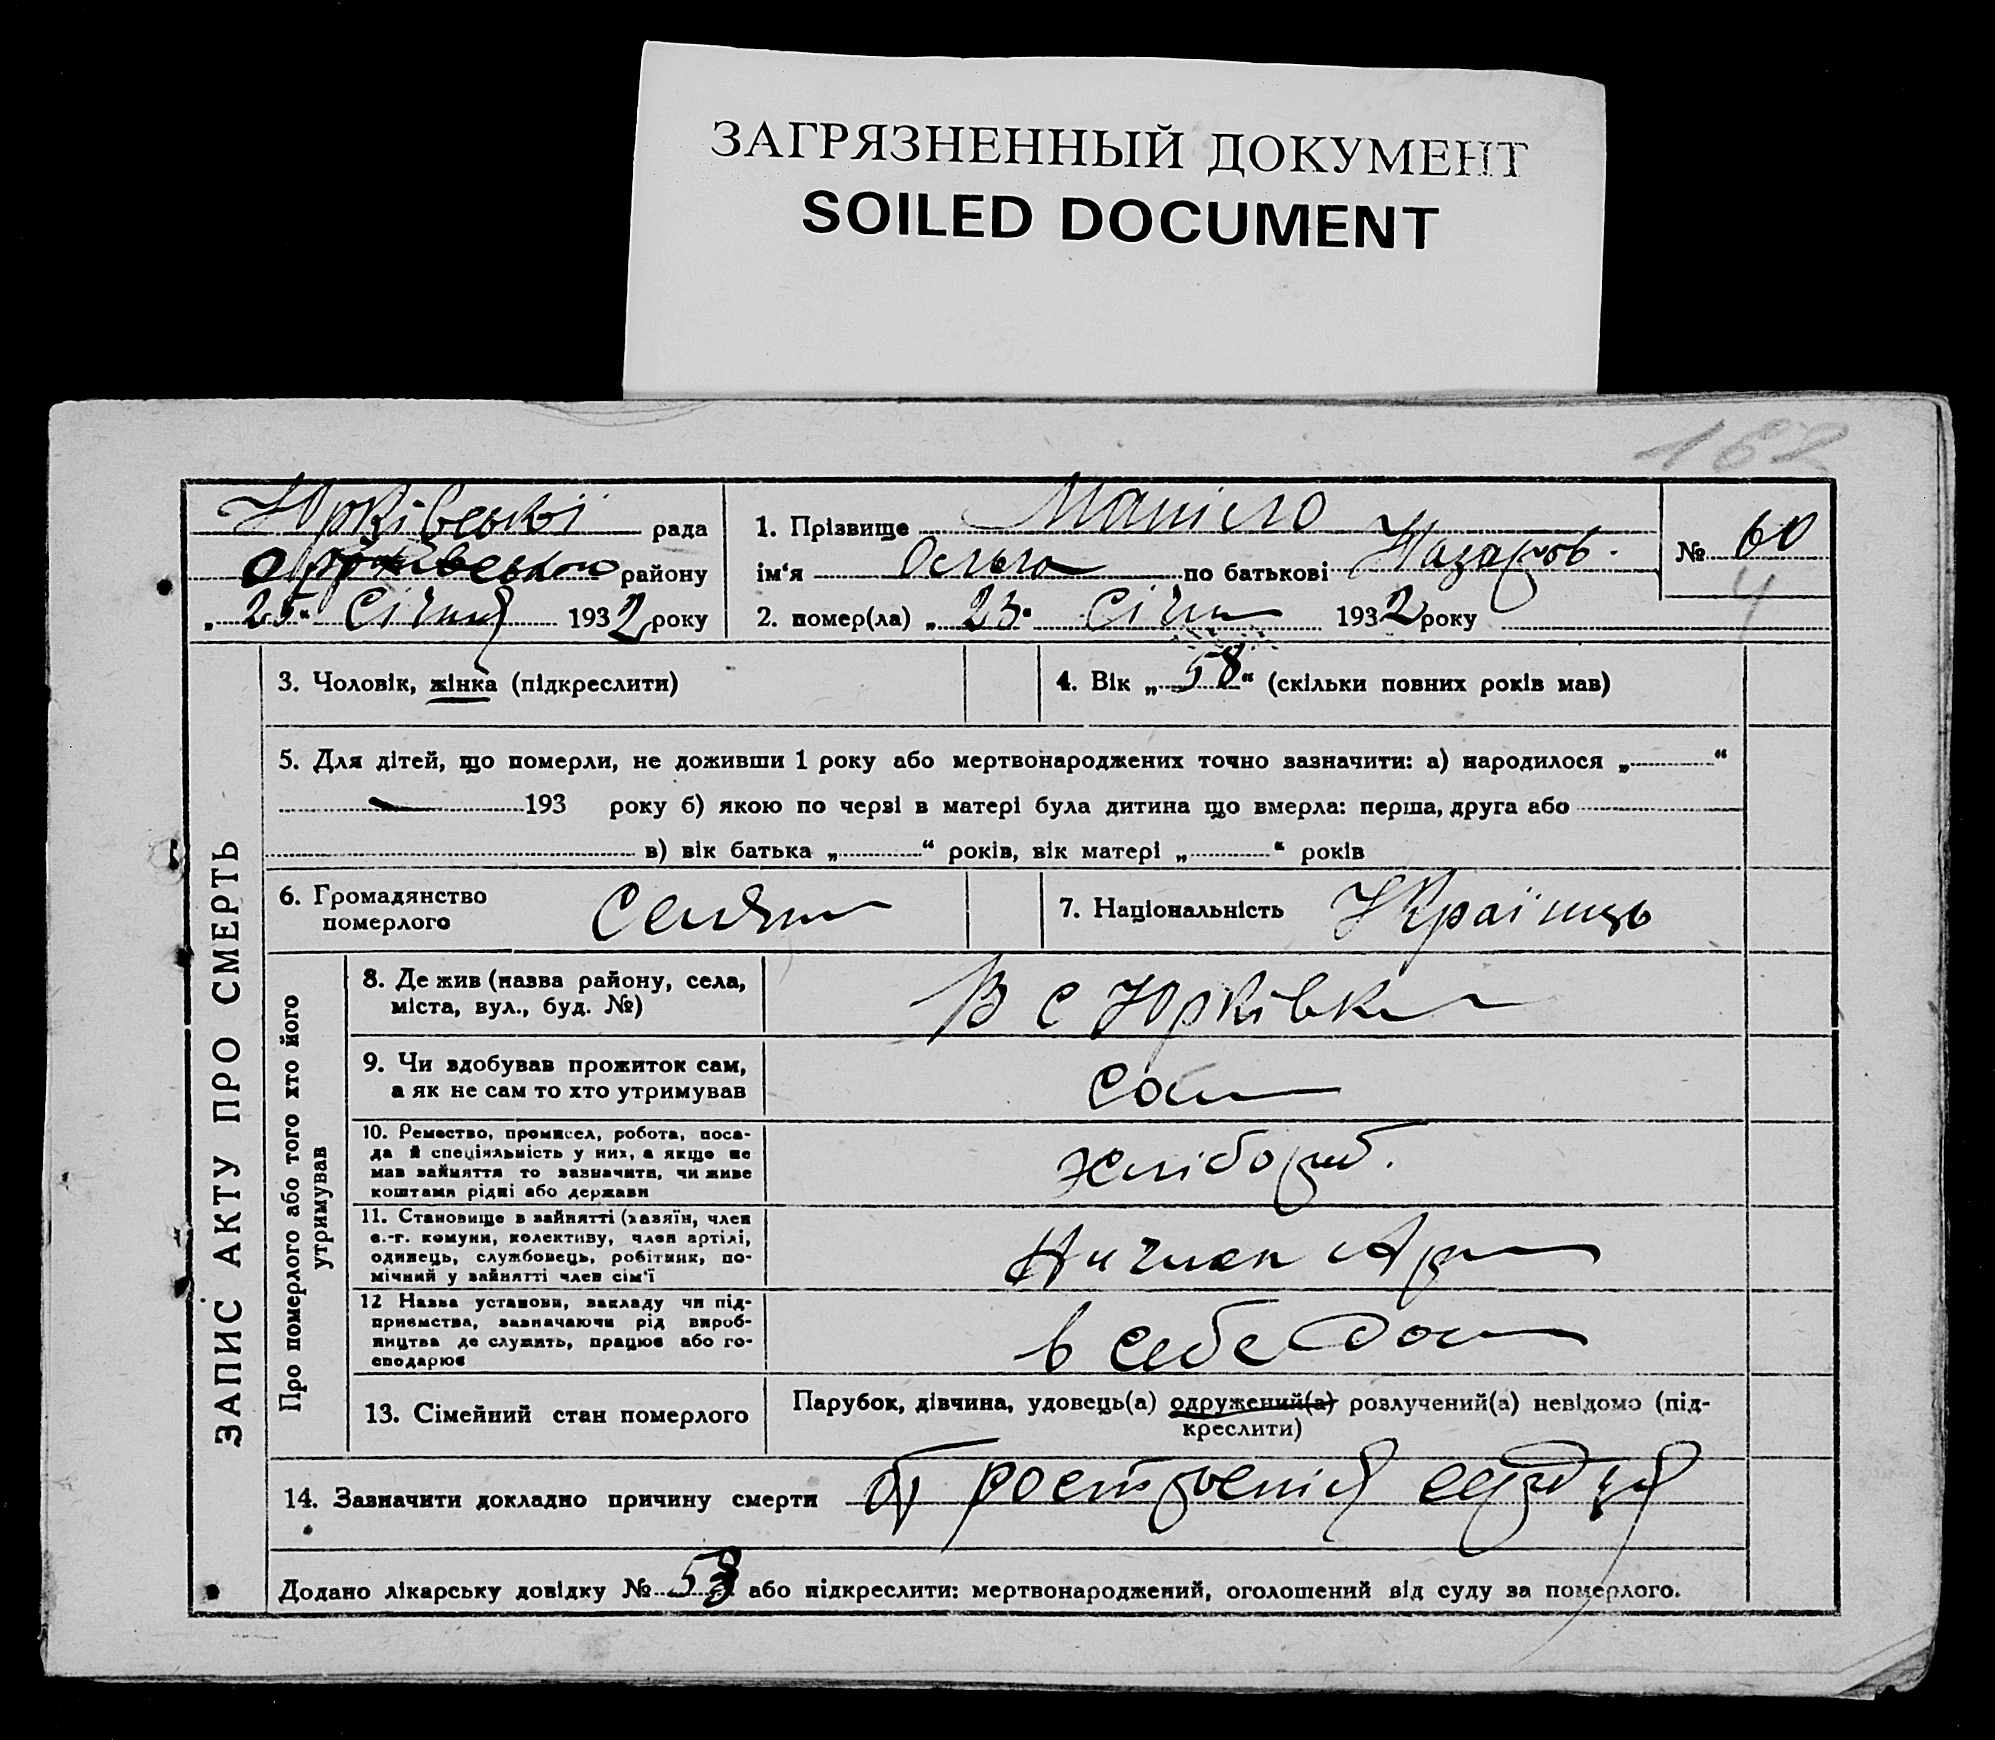 ЗАГРЯЗНЕННЫЙ ДОКУМЕНТ
SOILED DOCUMENT
162
Юрківської рада
району
„25“ Січня 1932 року
1. Прізвище
ім‘я по батькові Назаров.
2. помер(ла) „23“ Січн 1932 року
№ 60
4
ЗАПИС АКТУ ПРО СМЕРТЬ
3. Чоловік, жінка (підкреслити)
4. Вік „58“ (скільки повних років мав)
5. Для дітей, що померли, не доживши 1 року або мертвонароджених точно зазначити: а) народилося „ “
193 року б) якою по черві в матері була дитина що вмерла: перша, друга або
в) вік батька „ “ років, вік матері „ “ років
6. Громадянство
померлого
7. Національність Українць
Про померлого або того хто його
утримував
8. Де жив (назва району, села,
міста, вул., буд. №)
В с Юрківка
9. Чи вдобував прожиток сам,
а як не сам то хто утримував
сам
10. Ремество, промисел, робота, поса-
да й спеціяльність у них, а якщо не
мав вайняття то зазначити, чи живе
коштами рідні або держави
хлібороб.
11. Становище в вайнятті (хазяїн, член
с.-г. комуни, колективу, член артілі,
одинець, службовець, робітник, по-
мічний у вайнятті член сім‘ї
Ни член Ар
12 Назва установи, закладу чи під-
приємства, зазначаючи рід вироб-
ництва де служить, працює або го-
сподарює
в себе дома
13. Сімейний стан померлого
Парубок, дівчина, удовець(а) одружений(а) розлучений(а) невідомо (під-
креслити)
14. Зазначити докладно причину смерти
Додано лікарську довідку № 53 або підкреслити: мертвонароджений, оголошений від суду за померлого.